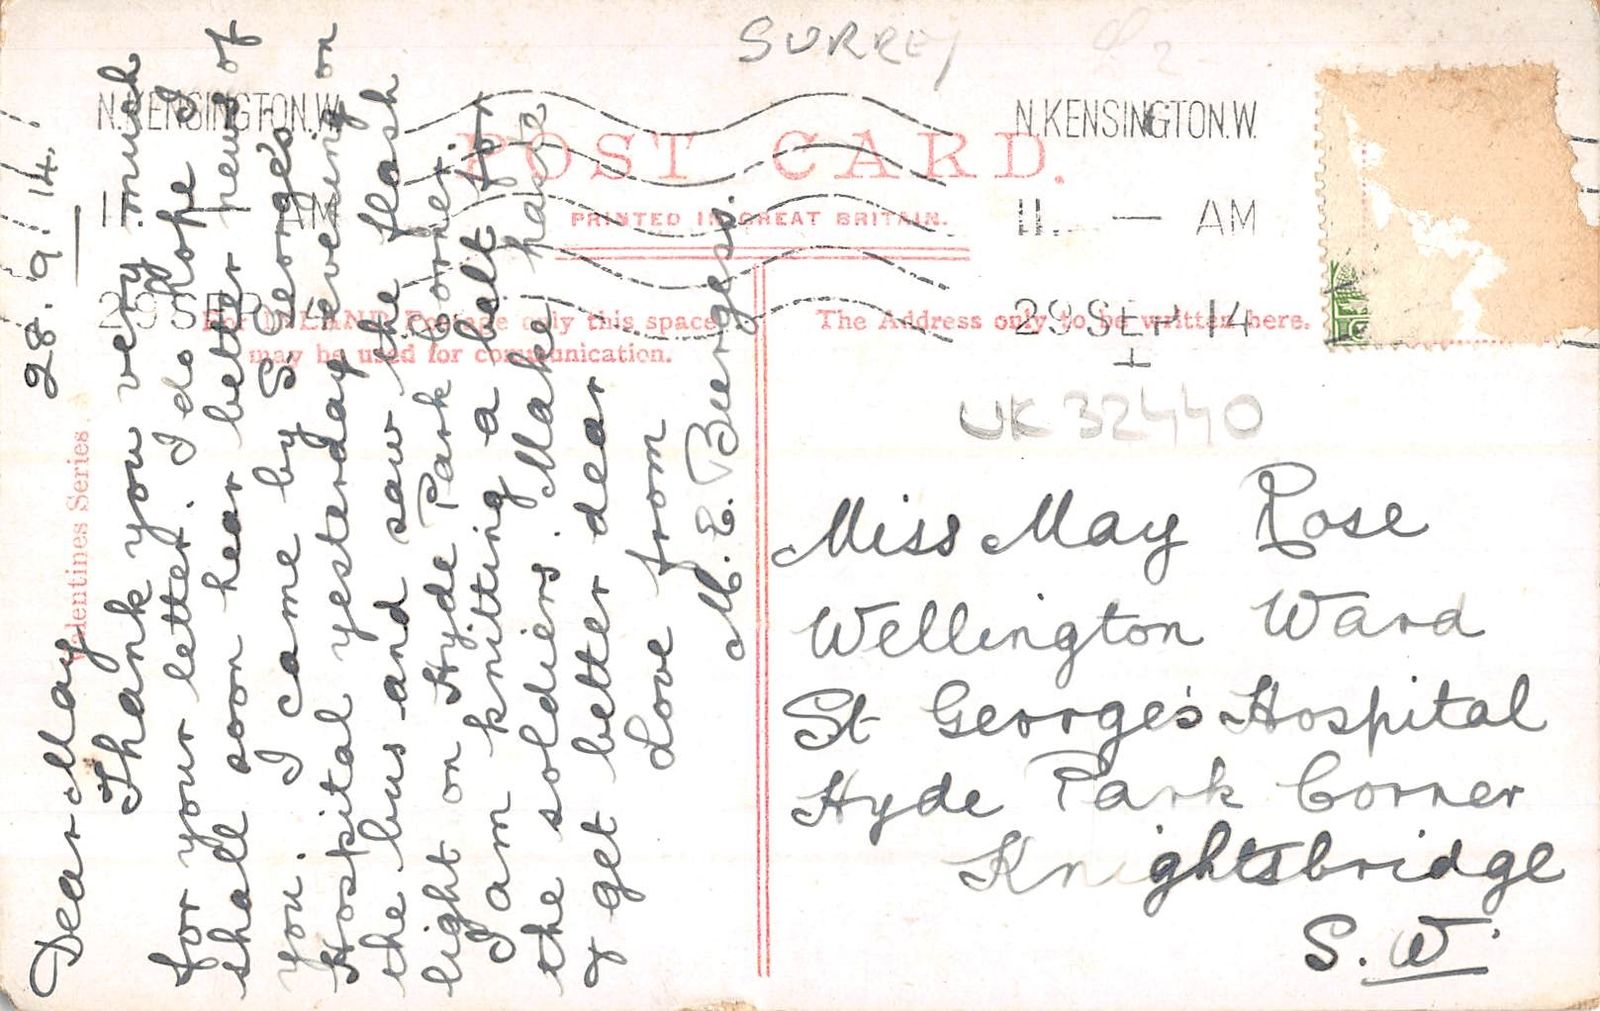 SURREY
POST CARD.
PRINTED IN GREAT BRITAIN.
For INLAND Postage only this space
may be used for communication.
The Address only to be written here.
Valentines Series.
N.KENSINGTON.W.
11. — AM
29 SEP 14
N.KENSINGTON.W.
11. — AM
29 SEP 14
UK 32440
28.9.14.
Dear May
Thank you very much
for your letter. I do hope I
shall soon hear better news of
you. I came by S. George's
Hospital yesterday evening on
the bus and saw the flash
light on Hyde Park Corner.
I am knitting a belt for
the soldiers. Make haste
& get better dear
Love from
M. E. Burgess.
Miss May Rose
Wellington Ward
St George's Hospital
Hyde Park Corner
Knightsbridge
S. W.